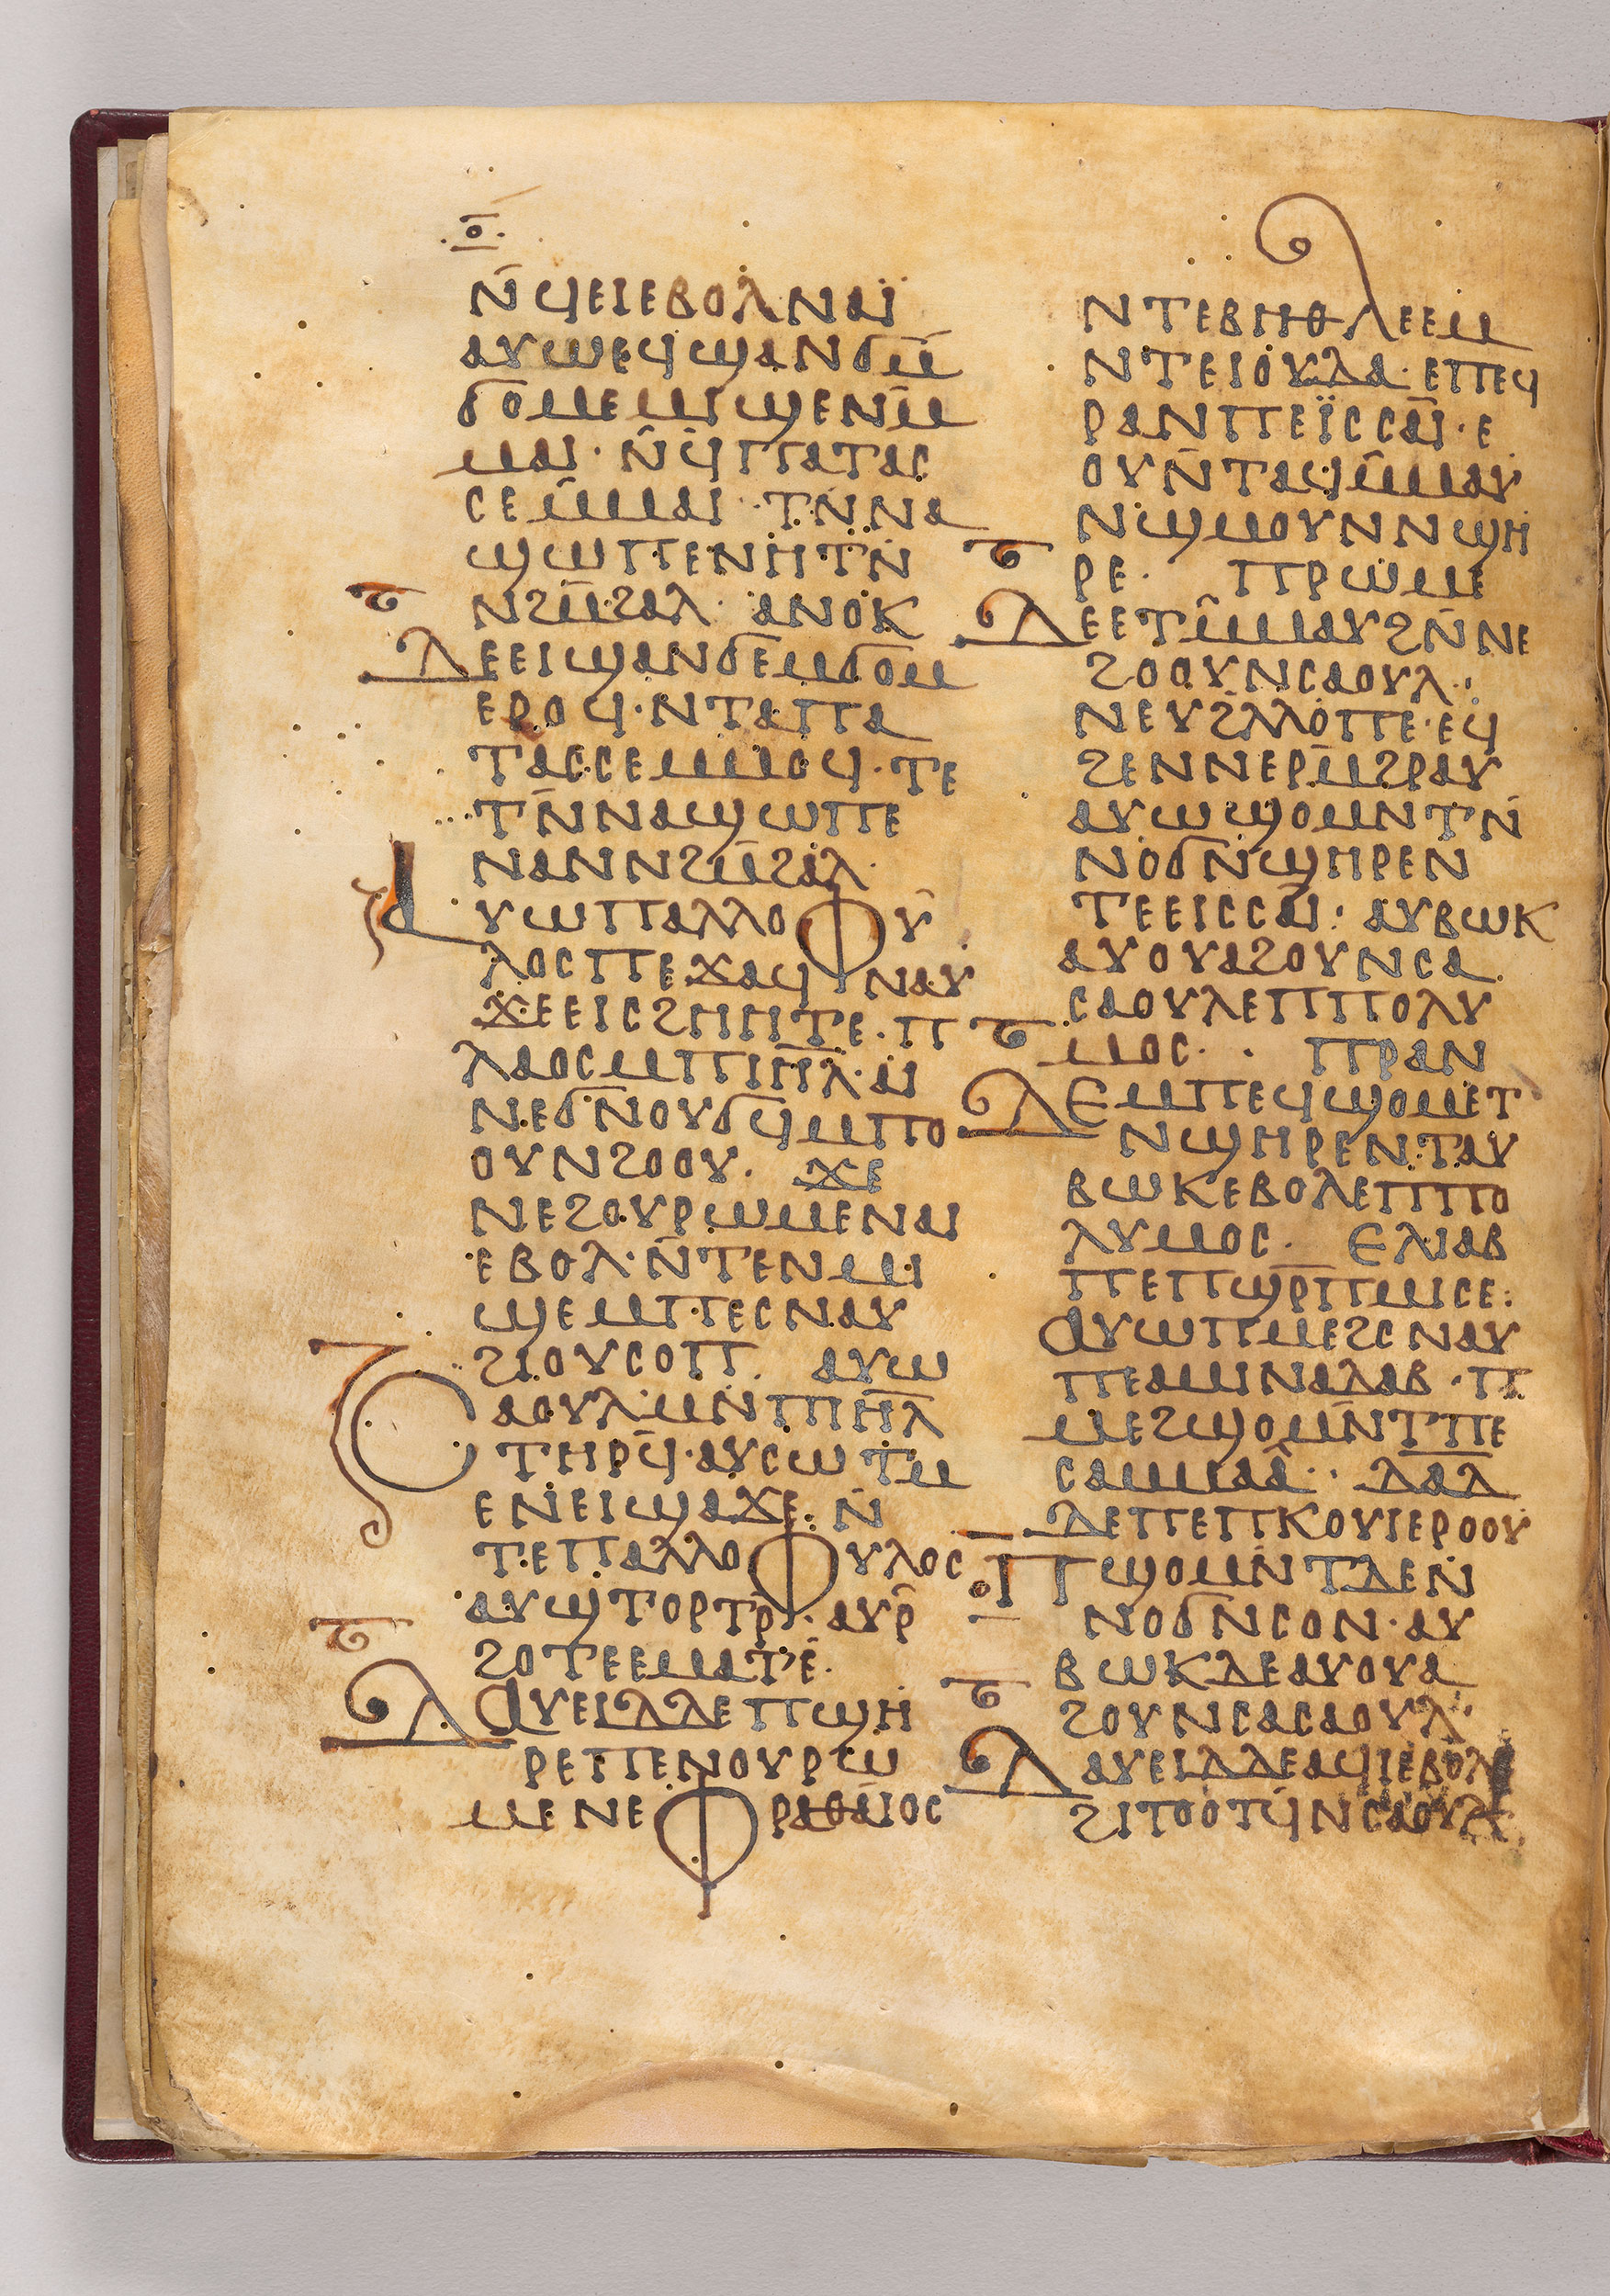 ⲟ̄
ⲛ̄ϥⲉⲓⲉⲃⲟⲗⲛⲁⲓ̈
ⲁⲩⲱⲉϥϣⲁⲛϭⲙ̄
ϭⲟⲙⲉⲙⲓϣⲉⲛⲙ̄
ⲙⲁⲓ· ⲛ̄ϥⲡⲁⲧⲁⲥ
ⲥⲉⲙ̄ⲙⲁⲓ· ⲧⲛ̄ⲛⲁ
ϣⲱⲡⲉⲛⲏⲧⲛ̄
ⲛϩⲙ̄ϩⲁⲗ· ⲁⲛⲟⲕ
ⲇⲉⲉⲓϣⲁⲛϭⲉⲙϭⲟⲙ
ⲉⲣⲟϥ·ⲛⲧⲁⲡⲁ
ⲧⲁⲥⲥⲉⲙⲙⲟϥ·ⲧⲉ
ⲧⲛ̄ⲛⲁϣⲱⲡⲉ
ⲛⲁⲛⲛϩⲙ̄ϩⲁⲗ·
ⲁⲩⲱⲡⲁⲗⲗⲟⲫⲩ
ⲗⲟⲥⲡⲉϫⲁϥⲛⲁⲩ
ϫⲉⲉⲓⲥϩⲏⲏⲧⲉ·ⲡ
ⲗⲁⲟⲥⲙⲡⲓⲏ̄ⲗ·ⲁⲓ
ⲛⲉϭⲛⲟⲩϭϥⲙⲡⲟ
ⲟⲩⲛϩⲟⲟⲩ· ϫⲉ
ⲛⲉϩⲟⲩⲣⲱⲙⲉⲛⲁⲓ
ⲉⲃⲟⲗ·ⲛ̄ⲧⲉⲛⲙⲓ
ϣⲉⲙⲡⲉⲥⲛⲁⲩ
ϩⲓⲟⲩⲥⲟⲡ· ⲁⲩⲱ
ⲥⲁⲟⲩⲗⲙⲛ̄ⲡⲓⲏ̄ⲗ
ⲧⲏⲣϥ̄·ⲁⲩⲥⲱⲧⲙ
ⲉⲛⲉⲓϣⲁϫⲉ·ⲛ̄
ⲧⲉⲡⲁⲗⲗⲟⲫⲩⲗⲟⲥ
ⲁⲩϣⲧⲟⲣⲧⲣ̄·ⲁⲩⲣ̄
ϩⲟⲧⲉⲉⲙⲁⲧⲉ·
ⲇⲁⲩⲉⲓⲇⲇⲉⲡϣⲏ
ⲣⲉⲡⲉⲛⲟⲩⲣⲱ
ⲙⲉⲛⲉⲫⲣⲁⲑⲁⲓⲟⲥ
ⲛⲧⲉⲃⲏⲑⲗⲉⲉⲙ
ⲛⲧⲉⲓⲟⲩⲇⲁ·ⲉⲡⲉϥ
ⲣⲁⲛⲡⲉⲓ̈ⲥⲥⲁⲓ·ⲉ
ⲟⲩⲛ̄ⲧⲁϥⲙ̄ⲙⲁⲩ
ⲛϣⲙⲟⲩⲛⲛϣⲏ
ⲣⲉ· ⲡⲣⲱⲙⲉ
ⲇⲉⲉⲧⲙ̄ⲙⲁⲩϩⲛ̄ⲛⲉ
ϩⲟⲟⲩⲛⲥⲁⲟⲩⲗ·
ⲛⲉⲩϩⲗ̄ⲗⲟⲡⲉ·ⲉϥ
ϩⲉⲛⲛⲉⲣⲙ̄ϩⲣⲁⲩ
ⲁⲩⲱϣⲟⲙⲛⲧⲛ̄
ⲛⲟϭⲛ̄ϣⲏⲣⲉⲛ
ⲧⲉⲉⲓⲥⲥⲁⲓ: ⲁⲩⲃⲱⲕ
ⲁⲩⲟⲩⲁϩⲟⲩⲛⲥⲁ
ⲥⲁⲟⲩⲗⲉⲡⲡⲟⲗⲩ
ⲙⲟⲥ· · ⲡⲣⲁⲛ
ⲇⲉⲙⲡⲉϥϣⲟⲙⲉⲧ
ⲛϣⲏⲣⲉⲛⲧⲁⲩ
ⲃⲱⲕⲉⲃⲟⲗⲉⲡⲡⲟ
ⲗⲩⲙⲟⲥ· ⲉⲗⲓⲁⲃ
ⲡⲉⲡϣⲣ̄ⲡⲙⲓⲥⲉ:
ⲁⲩⲱⲡⲙⲉϩⲥⲛⲁⲩ
ⲡⲉⲁⲙⲓⲛⲁⲇⲁⲃ·ⲡ
ⲙⲉϩϣⲟⲙⲛ̄ⲧⲡⲉ
ⲥⲁⲙⲙⲁⲁ̂·· ⲇⲁⲇ
ⲇⲉⲡⲉⲡⲕⲟⲩⲓⲉⲣⲟⲟⲩ
ⲡϣⲟⲙⲛ̄ⲧⲇⲉⲛ̄
ⲛⲟϭⲛⲥⲟⲛ·ⲁⲩ
ⲃⲱⲕⲇⲉⲁⲩⲟⲩⲁ
ϩⲟⲩⲛⲥⲁⲥⲁⲟⲩⲗ·
ⲇⲁⲩⲉⲓⲇⲇⲉⲁϥⲓⲉⲃⲟⲗ
ϩⲓⲧⲟⲟⲧϥⲛⲥⲁⲟⲩⲗ